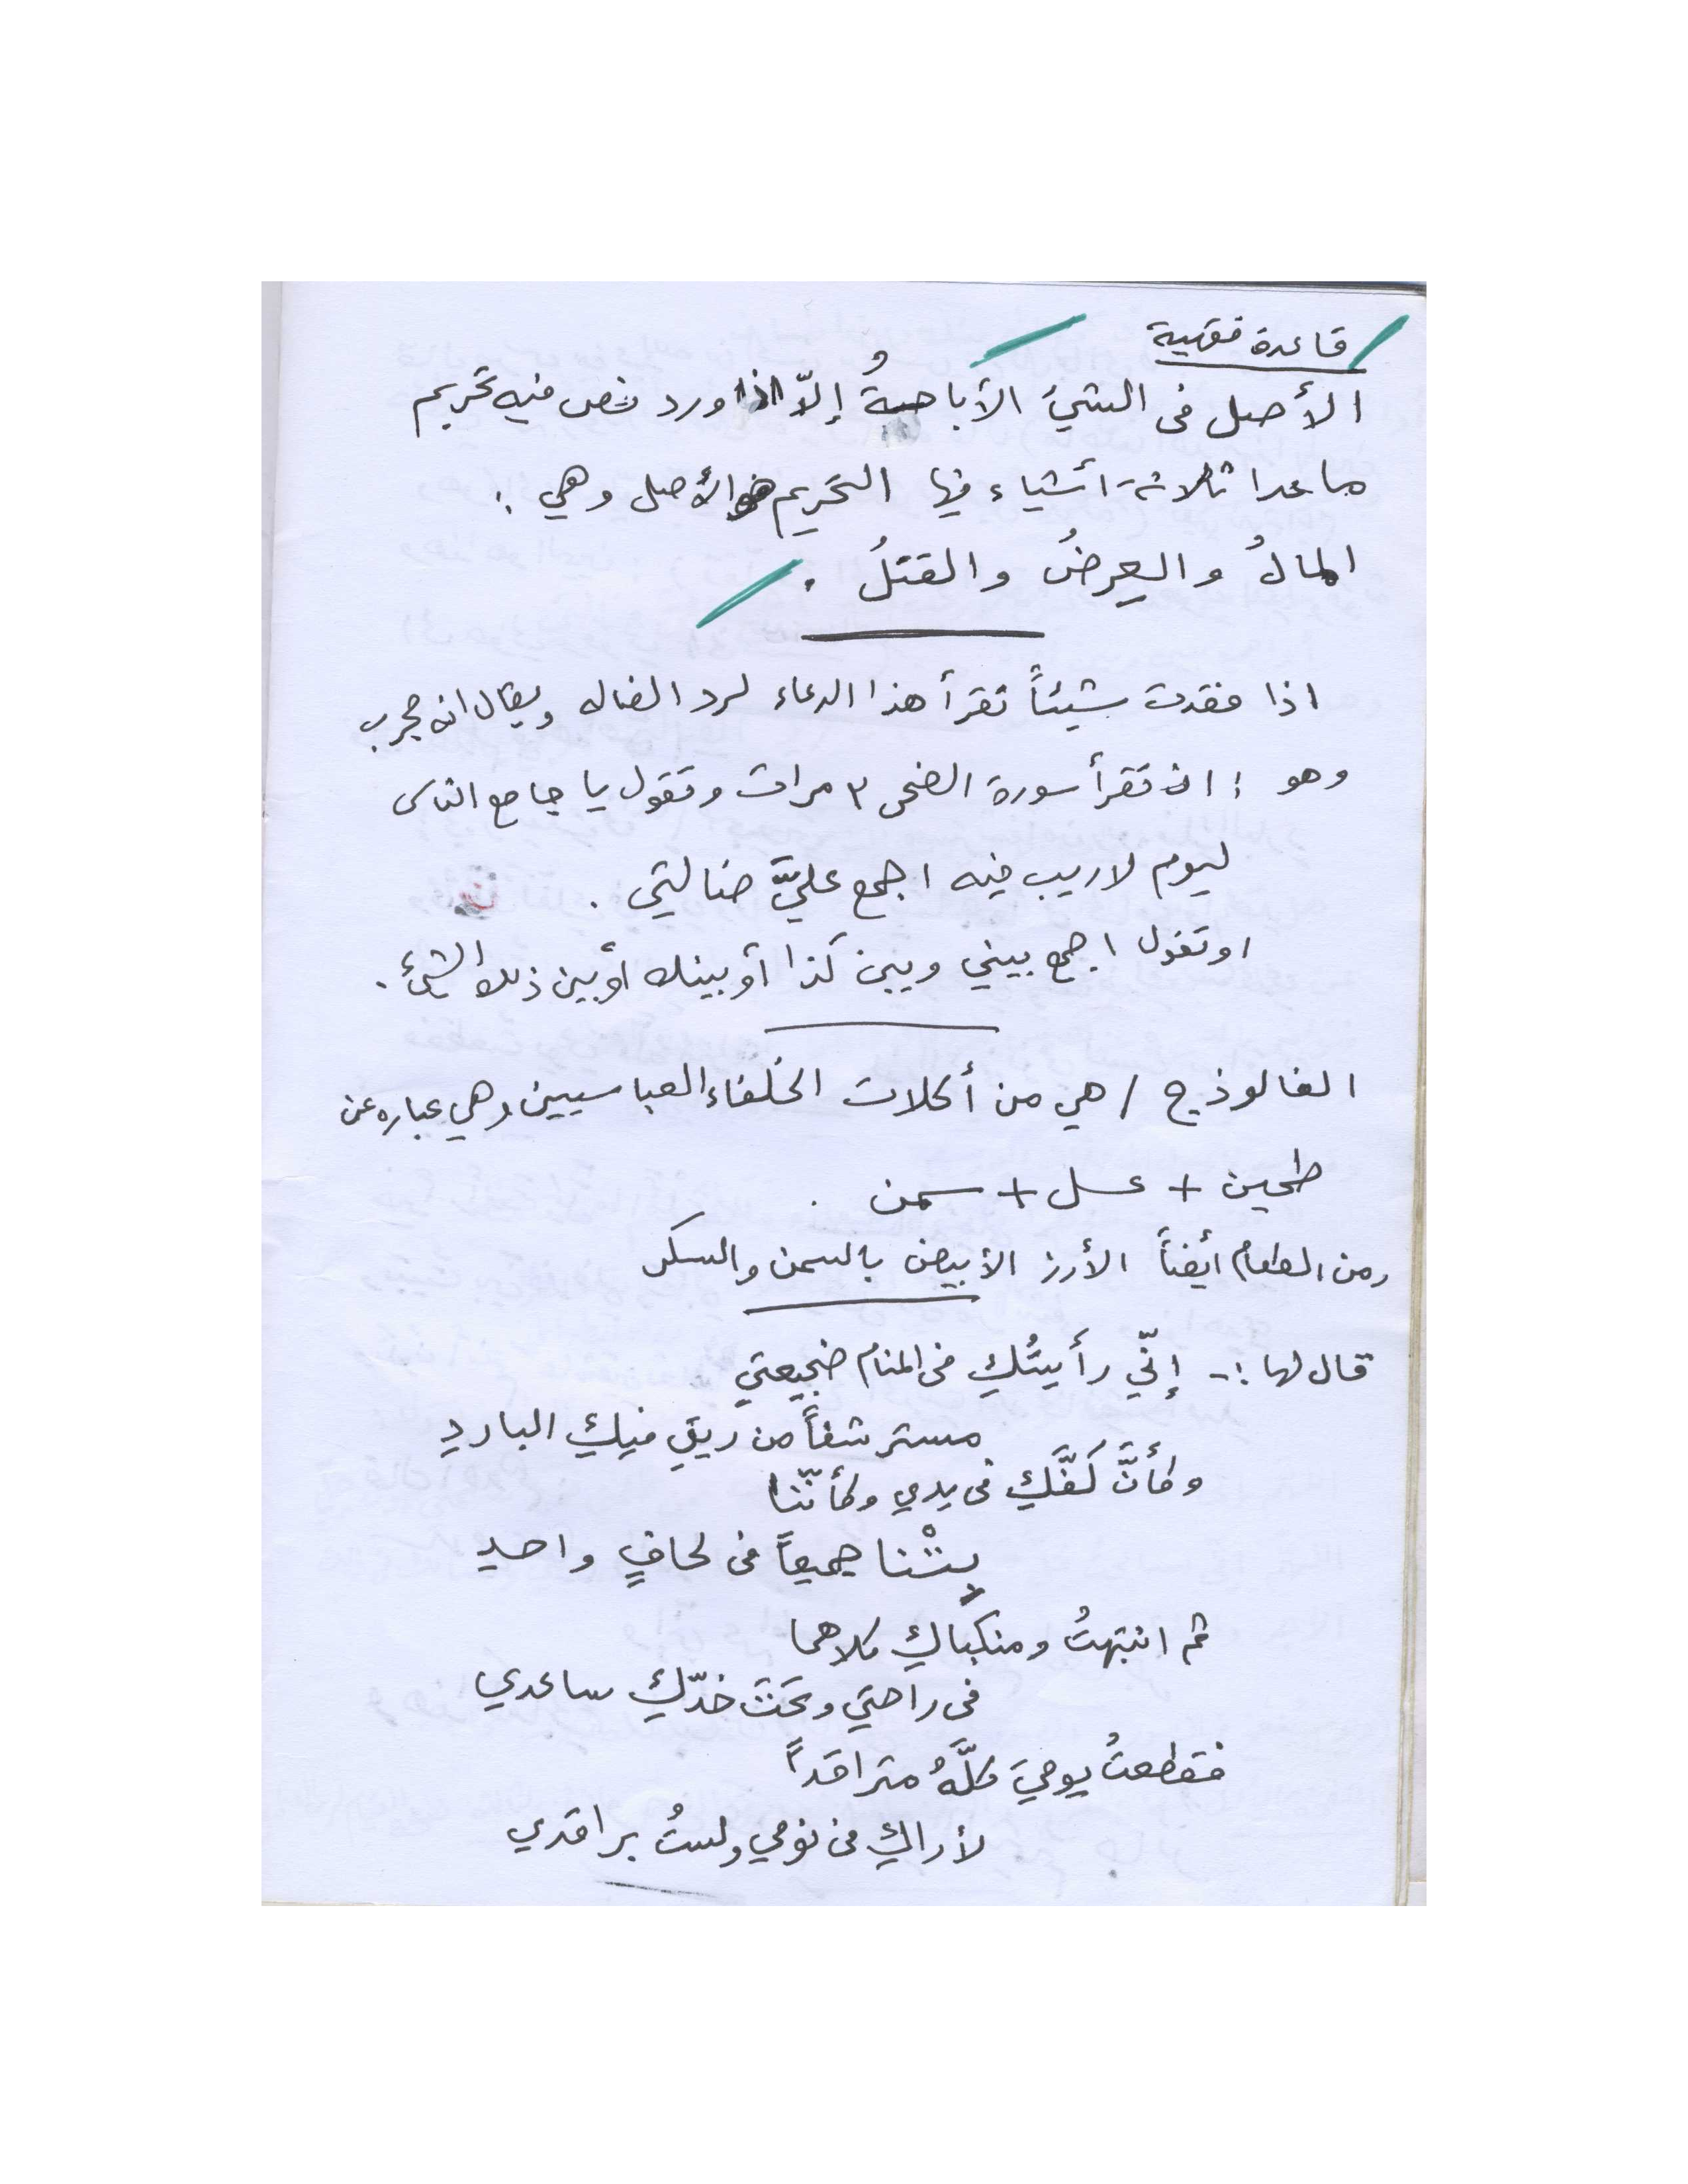 قاعدة فقهية
الأصل في الشيء الأباحةُ إلاّ اذا ورد نص فيه تحريم
ماعدا ثلاثة أشياء فيها التحريم هو الأصل وهي :
المالُ والعِرضُ والقتلُ .
اذا فقدت شيئاً تقرأ هذا الدعاء لرد الضاله ويقال انه مجرب
وهو : ان تقرأ سورة الضحى ٣ مرات وتقول يا جامع الناس
ليوم لاريب فيه اجمع عليَّ ضالتي .
اوتقول اجمع بيني وبين كذا أو بينك أو بين ذلك الشيء .
الفالوذج / هي من أكلات الخلفاء العباسيين وهي عباره عن
طحين + عسل + سمن .
ومن الطعام أيضاً الأرز الأبيض بالسمن والسكر
قال لها :- إنّي رأيتُكِ في المنام ضجيعتي
مسترشفاً من ريقِ فيكِ الباردِ
وكأنَّ كَفَّكِ في يدي وكأنّنا
بِتْنا جميعاً في لحافٍ واحدِ
ثم انتبهتُ ومنكباكِ كلاهما
في راحتي وتحتَ خدّكِ ساعدي
فقطعتُ يوميَ كلَّهُ متراقداً
لأراكِ في نومي ولستُ براقدي